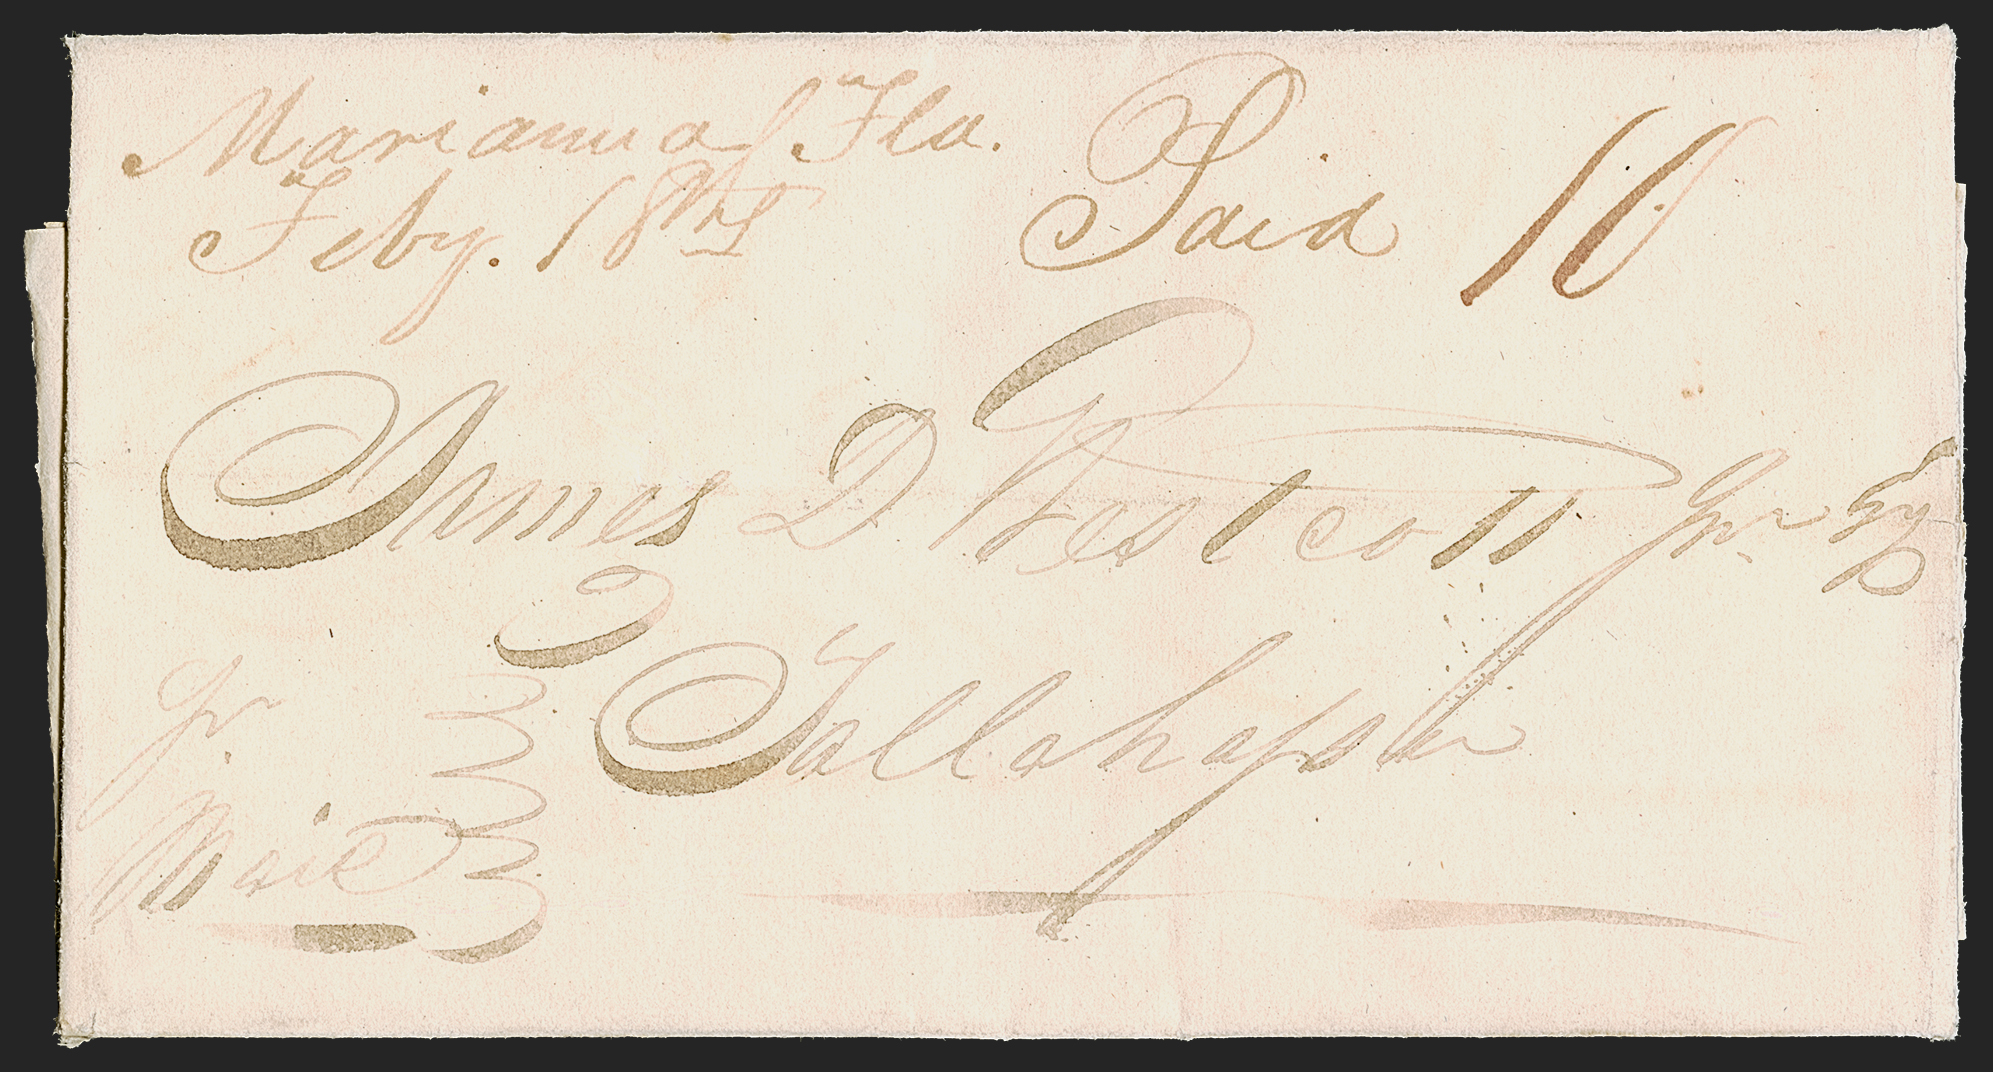 Marianna Fla. Paid 10
Feby. 18th
James D Westcott Jnr Esq
Tallahassee
pr.
Mail